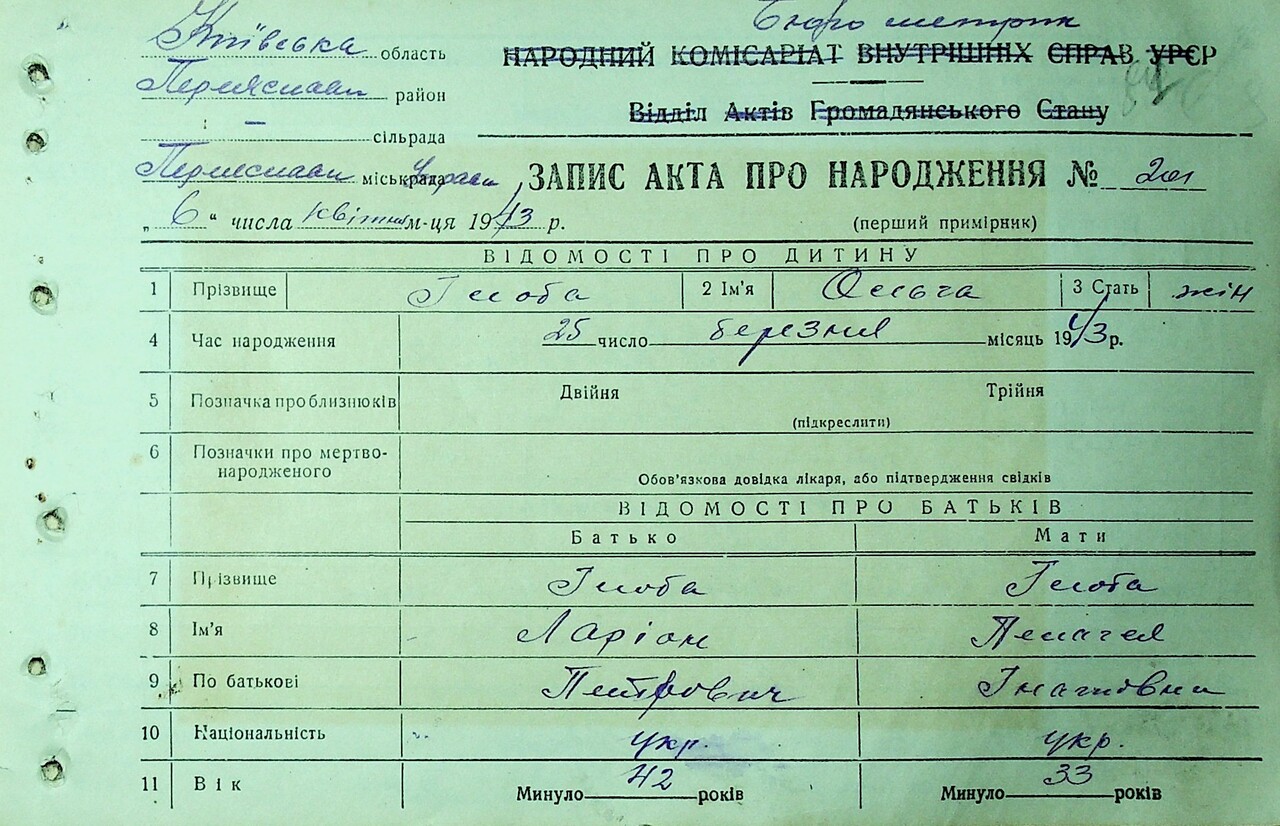 Бюро метрик
Київська область
НАРОДНИЙ КОМІСАРІАТ ВНУТРІШНІХ СПРАВ УРСР
Переяслав район
Відділ Актів Громадянського Стану
— сільрада
Переяслав міськрада управи
ЗАПИС АКТА ПРО НАРОДЖЕННЯ № 201
„6“ числа квітня м-ця 1943 р.
(перший примірник)
ВІДОМОСТІ ПРО ДИТИНУ
1 Прізвище Глоба 2 Ім'я Ольга 3 Стать жін
4 Час народження 25 число березня місяць 1943 р.
5 Позначка про близнюків Двійня Трійня
(підкреслити)
6 Позначки про мертво-
народженого
Обов'язкова довідка лікаря, або підтвердження свідків
ВІДОМОСТІ ПРО БАТЬКІВ
Батько Мати
7 Прізвище Глоба Глоба
8 Ім'я Ларіон Пелагея
9 По батькові Петрович Ігнатівна
10 Національність укр. укр.
11 Вік Минуло 42 років Минуло 33 років